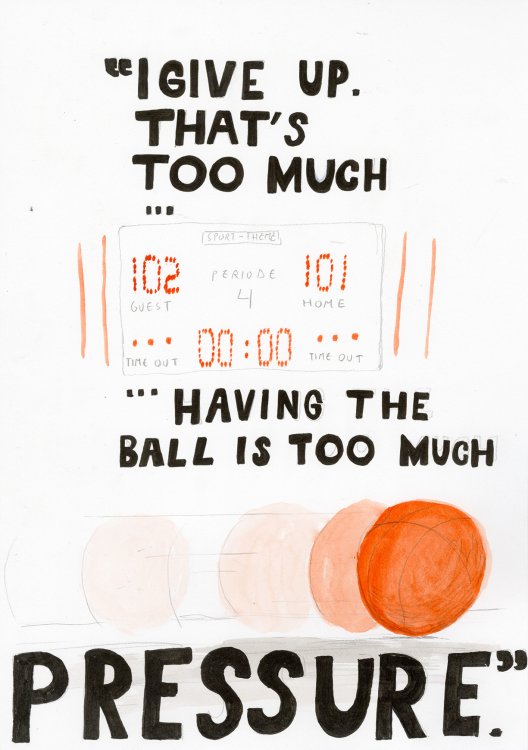 “I GIVE UP.
THAT'S
TOO MUCH
...
SPORT-THEME
102 PERIODE 101
GUEST 4 HOME
... 00:00 ...
TIME OUT TIME OUT
... HAVING THE
BALL IS TOO MUCH
PRESSURE.”